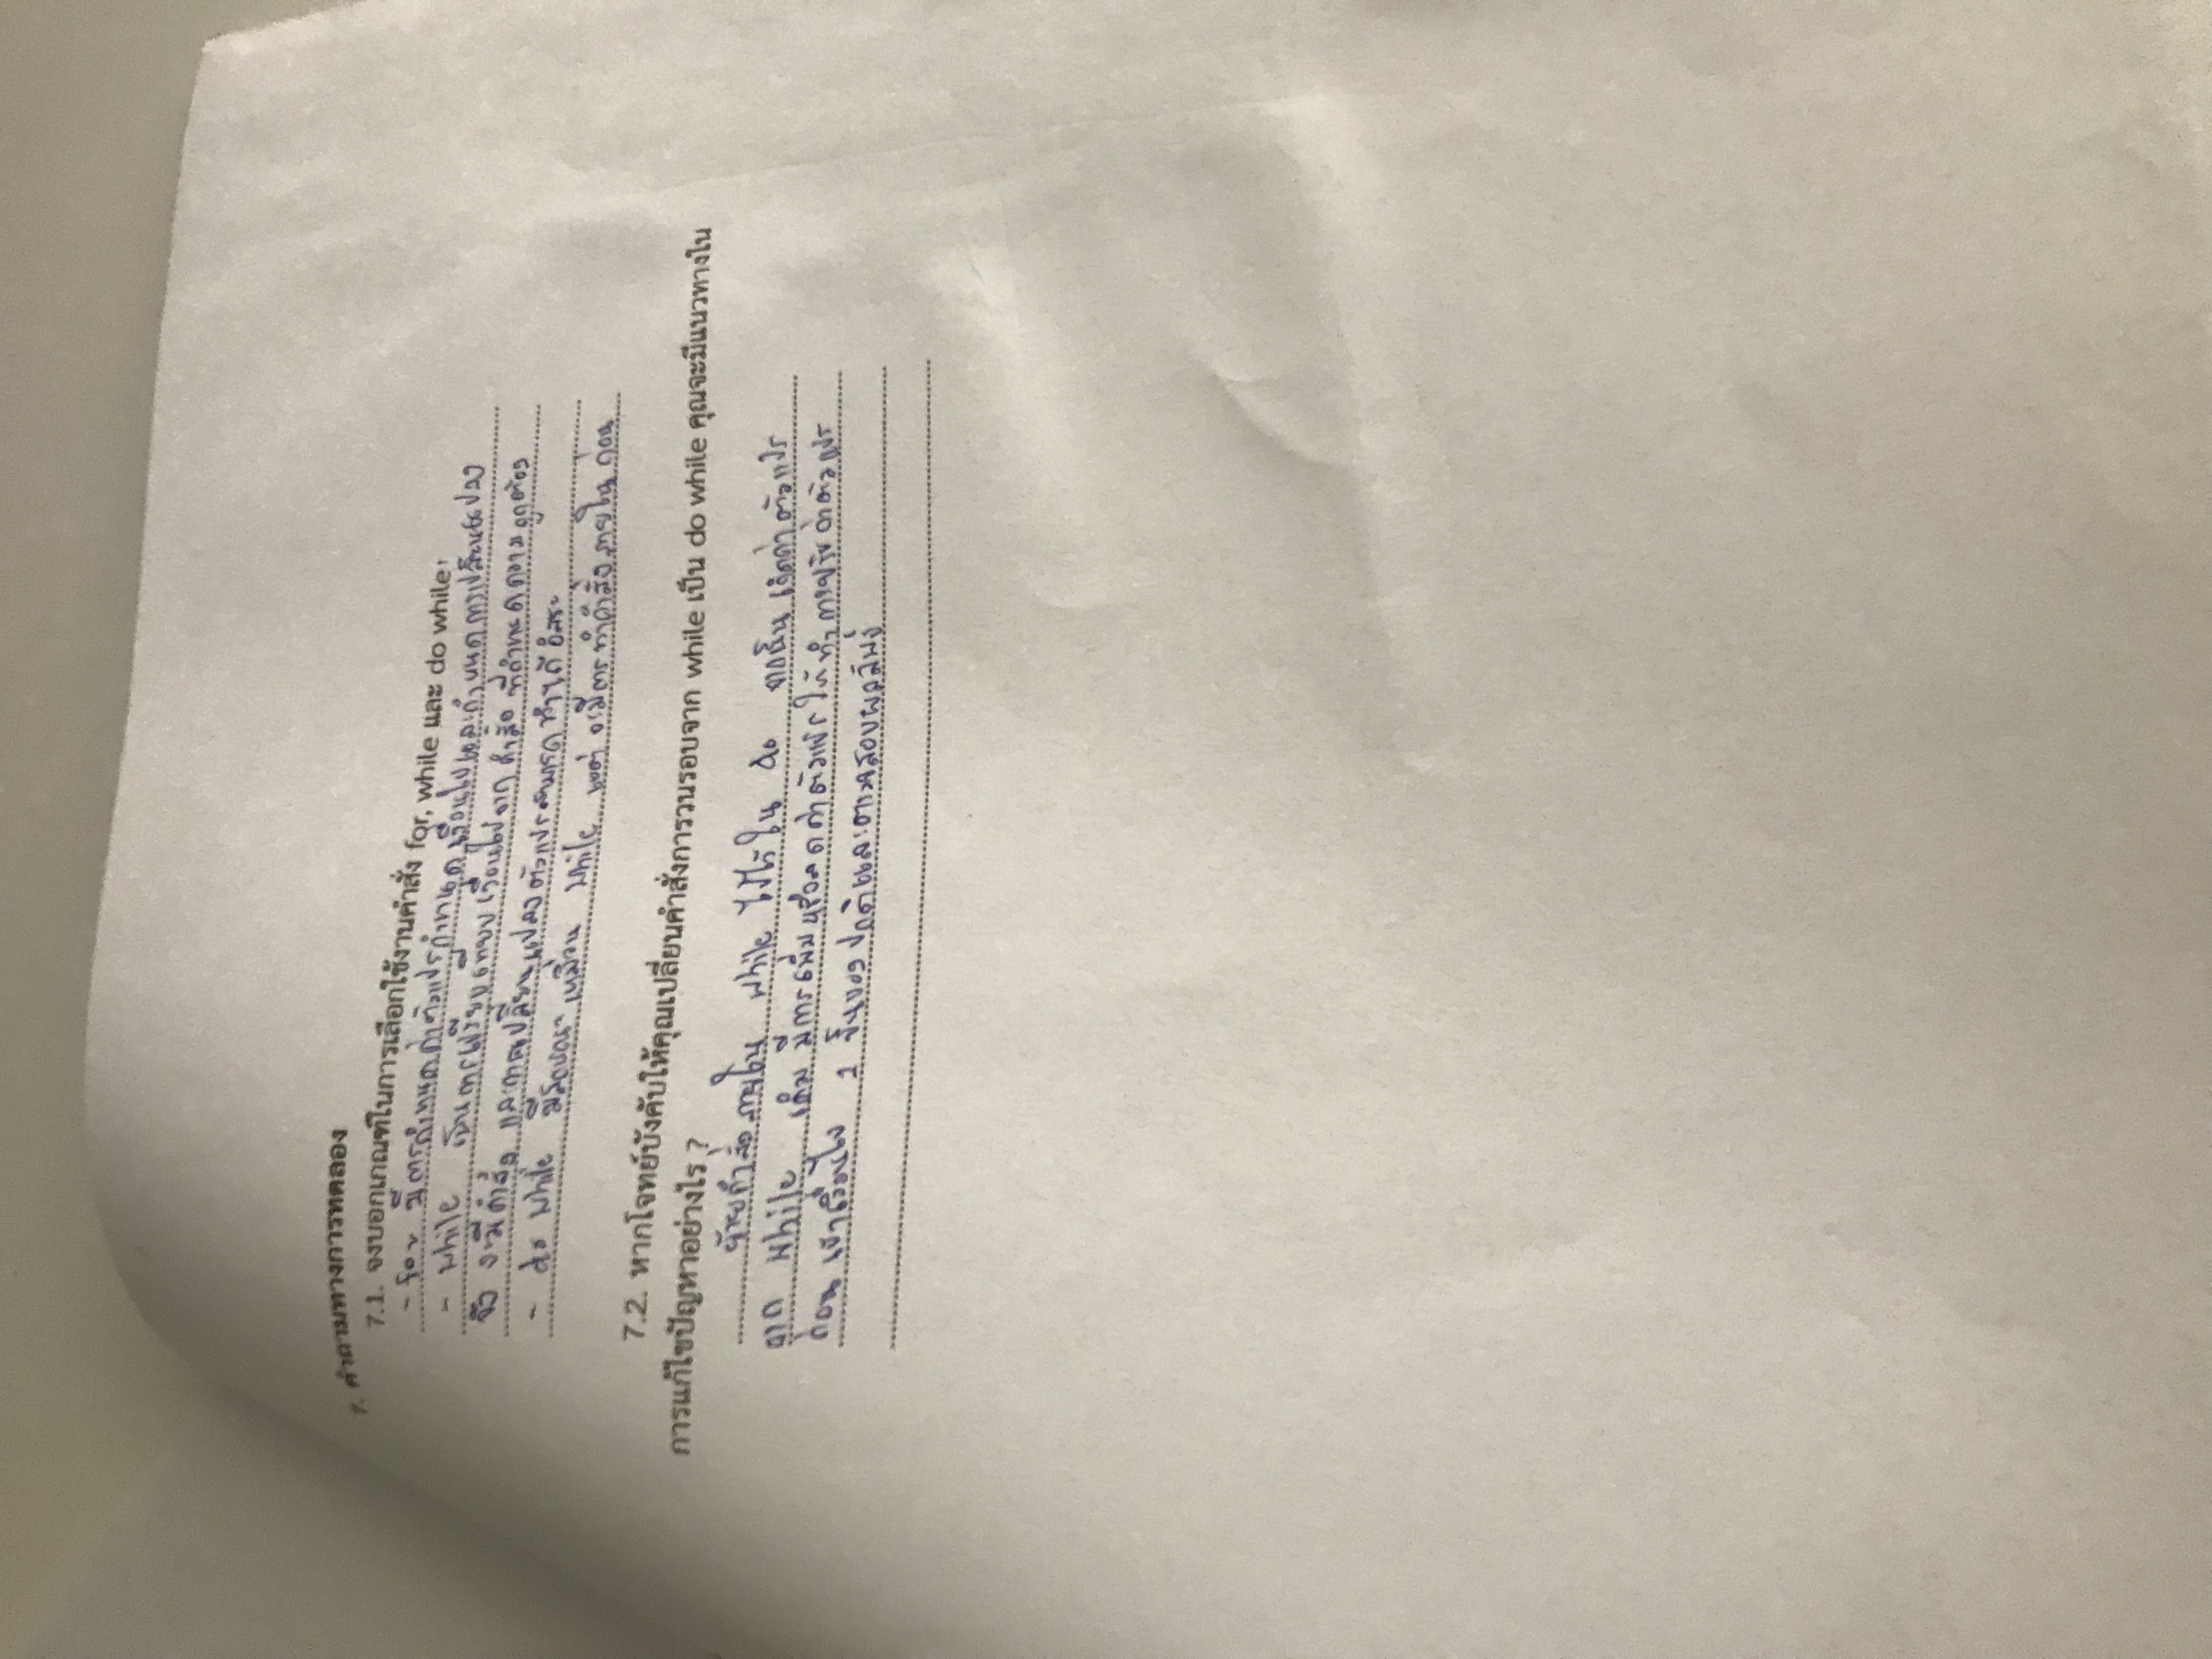 7. คำถามทางการทดลอง
7.1. จงบอกเกณฑ์ในการเลือกใช้งานคำสั่ง for, while และ do while
- for มีการกำหนดค่าตัวแปรกำหนดเงื่อนไขและกำหนดการเปลี่ยนแปลง
- while เป็นการเปรียบเทียบเงื่อนไขจากคำสั่ง ที่กำหนดความถูกต้อง
จึง จะมีคำสั่ง และการเปลี่ยนแปลงตัวแปรสามารถทำได้อิสระ
- do while มีลักษณะเหมือน while แต่ จะมีการทำคำสั่งภายในก่อน
7.2. หากโจทย์บังคับให้คุณเปลี่ยนคำสั่งการวนรอบจาก while เป็น do while คุณจะมีแนวทางใน
การแก้ไขปัญหาอย่างไร ?
ย้ายคำสั่งภายใน while ไปไว้ใน do จากนั้น ค่าตัวแปร
จาก while เดิม มีการเพิ่มหรือลดค่าตัวแปร ให้ทำการปรับค่าตัวแปร
ก่อนเข้าเงื่อนไข 1 ขั้นของปกติและตรวจสอบผลลัพธ์